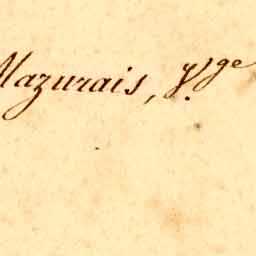 Mazurais, y.ge